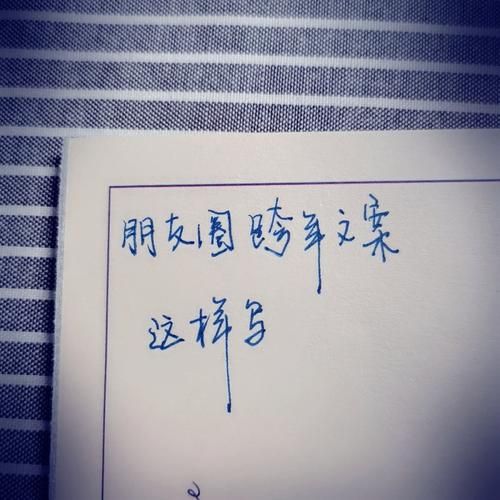 朋友圈跨年文案
这样写